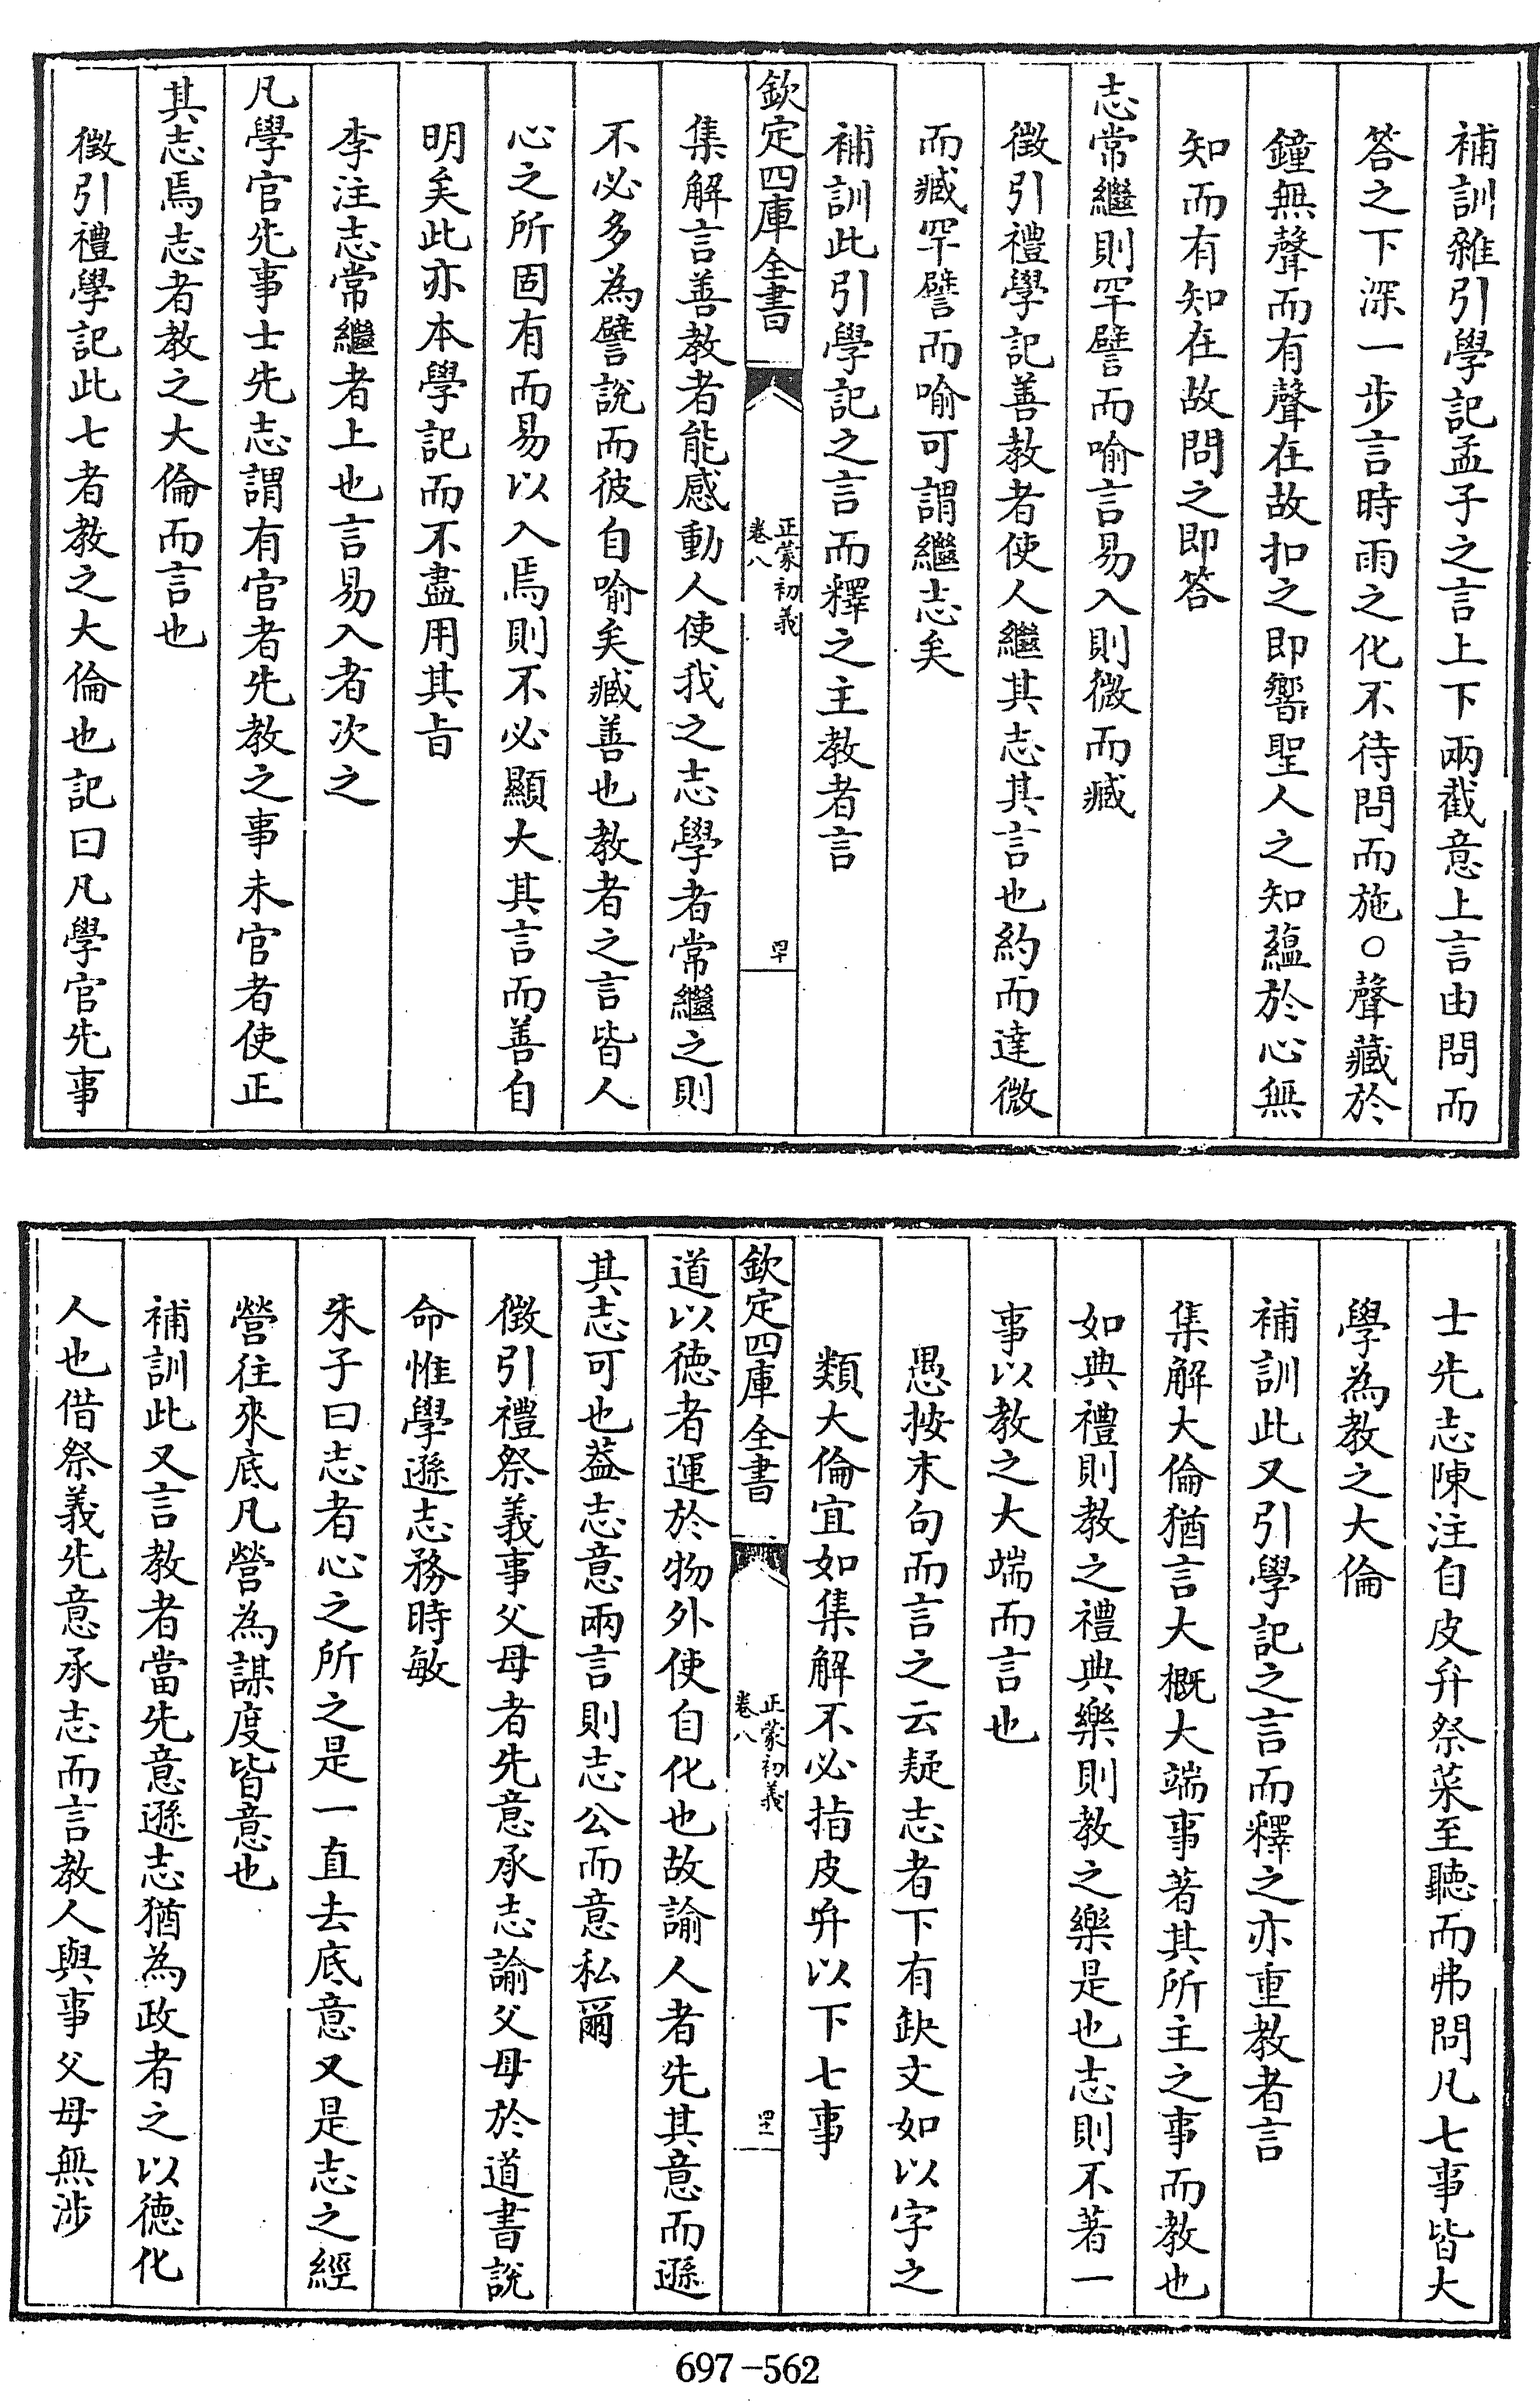 補訓雜引學記孟子之言上下兩截意上言由問而
答之下深一步言時雨之化不待問而施○聲藏於
鐘無聲而有聲在故扣之即響聖人之知蘊於心無
知而有知在故問之即答
志常繼則罕譬而喻言易入則微而臧
徵引禮學記善教者使人繼其志其言也約而達微
而臧罕譬而喻可謂繼志矣
補訓此引學記之言而釋之主教者言
欽定四庫全書
正蒙初義
卷八
罕
集解言善教者能感動人使我之志學者常繼之則
不必多為譬說而彼自喻矣臧善也教者之言皆人
心之所固有而易以入焉則不必顯大其言而善自
明矣此亦本學記而不盡用其旨
李注志常繼者上也言易入者次之
凡學官先事士先志謂有官者先教之事未官者使正
其志焉志者教之大倫而言也
徵引禮學記此七者教之大倫也記曰凡學官先事
士先志陳注自皮弁祭菜至聽而弗問凡七事皆大
學為教之大倫
補訓此又引學記之言而釋之亦重教者言
集解大倫猶言大概大端事著其所主之事而教也
如典禮則教之禮典樂則教之樂是也志則不著一
事以教之大端而言也
愚按末句而言之云疑志者下有缺文如以字之
類大倫宜如集解不必指皮弁以下七事
欽定四庫全書
正蒙初義
卷八
道以徳者運於物外使自化也故諭人者先其意而遜
其志可也葢志意兩言則志公而意私爾
徵引禮祭義事父母者先意承志諭父母於道書說
命惟學遜志務時敏
朱子曰志者心之所之是一直去底意又是志之經
營往來底凡營為謀度皆意也
補訓此又言教者當先意遜志猶為政者之以徳化
人也借祭義先意承志而言教人與事父母無涉
697-562